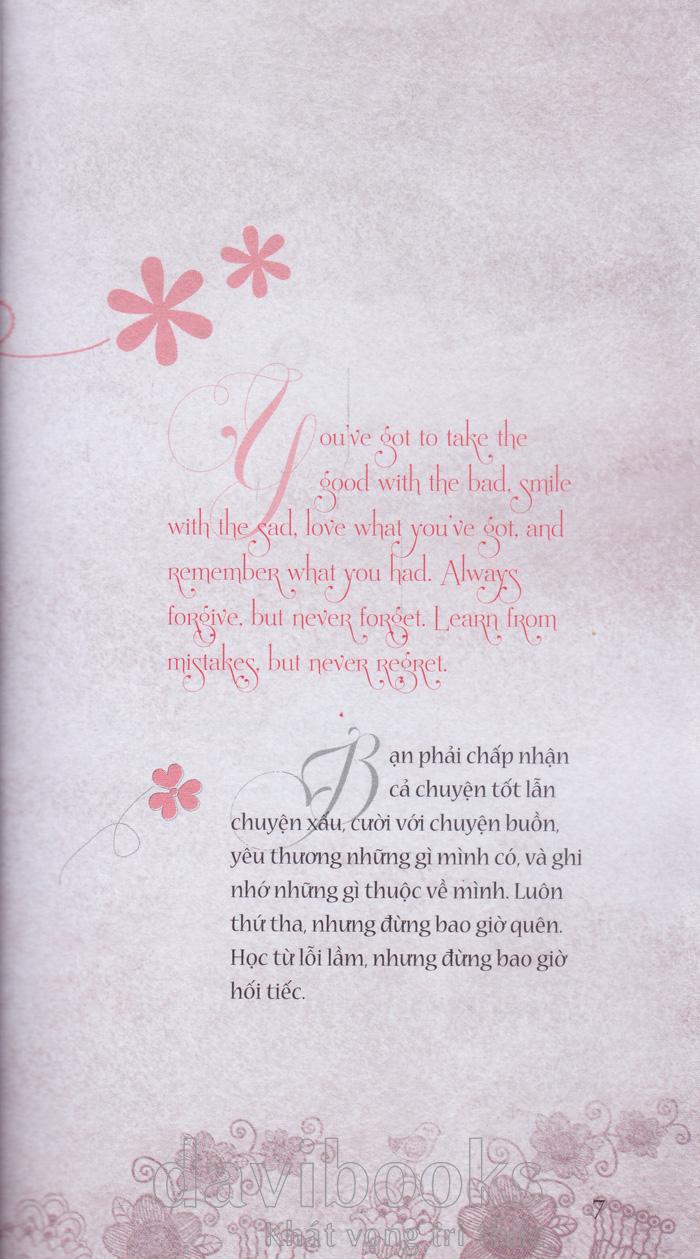 You've got to take the
good with the bad, smile
with the sad, love what you've got, and
remember what you had. Always
forgive, but never forget. Learn from
mistakes, but never regret.
Bạn phải chấp nhận
cả chuyện tốt lẫn
chuyện xấu, cười với chuyện buồn,
yêu thương những gì mình có, và ghi
nhớ những gì thuộc về mình. Luôn
thứ tha, nhưng đừng bao giờ quên.
Học từ lỗi lầm, nhưng đừng bao giờ
hối tiếc.
davibooks
7
Khát vọng tri thức